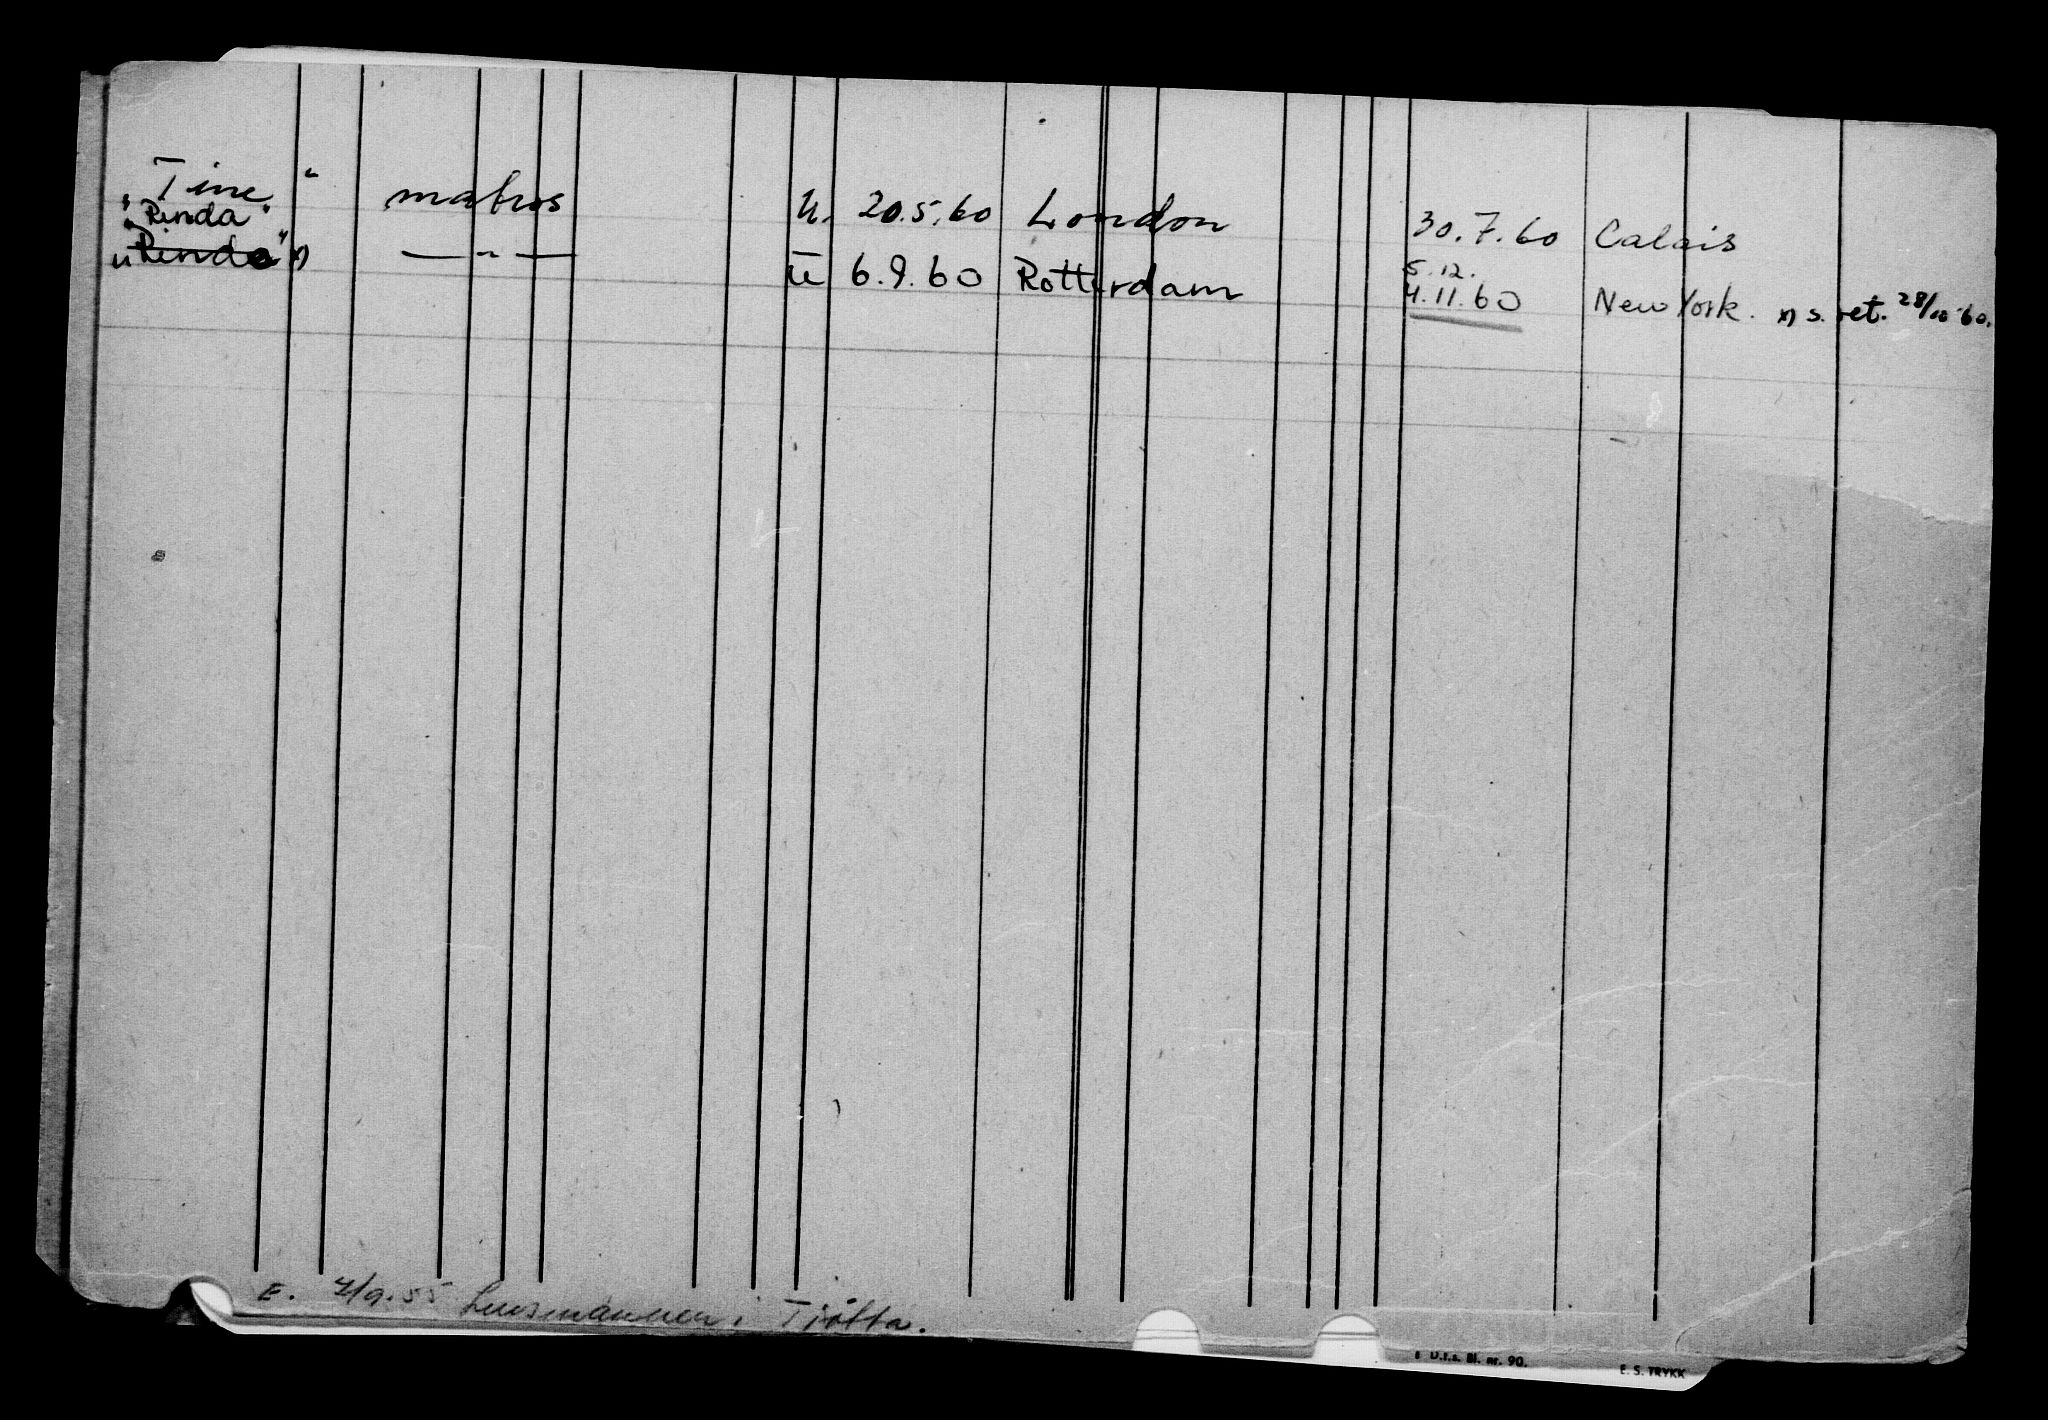 "Tine" matros u. 20.5.60 London 30.7.60 Calais
"Rinda"
"Rinda" x) — " — u 6.9.60 Rotterdam 5.12. 4.11.60 New York. x) s. ret. 28/10-60.
E. 7/9.55 Lensmannen i Tjøtta.
D.f.s. Bl. nr. 90. E. S. TRYKK